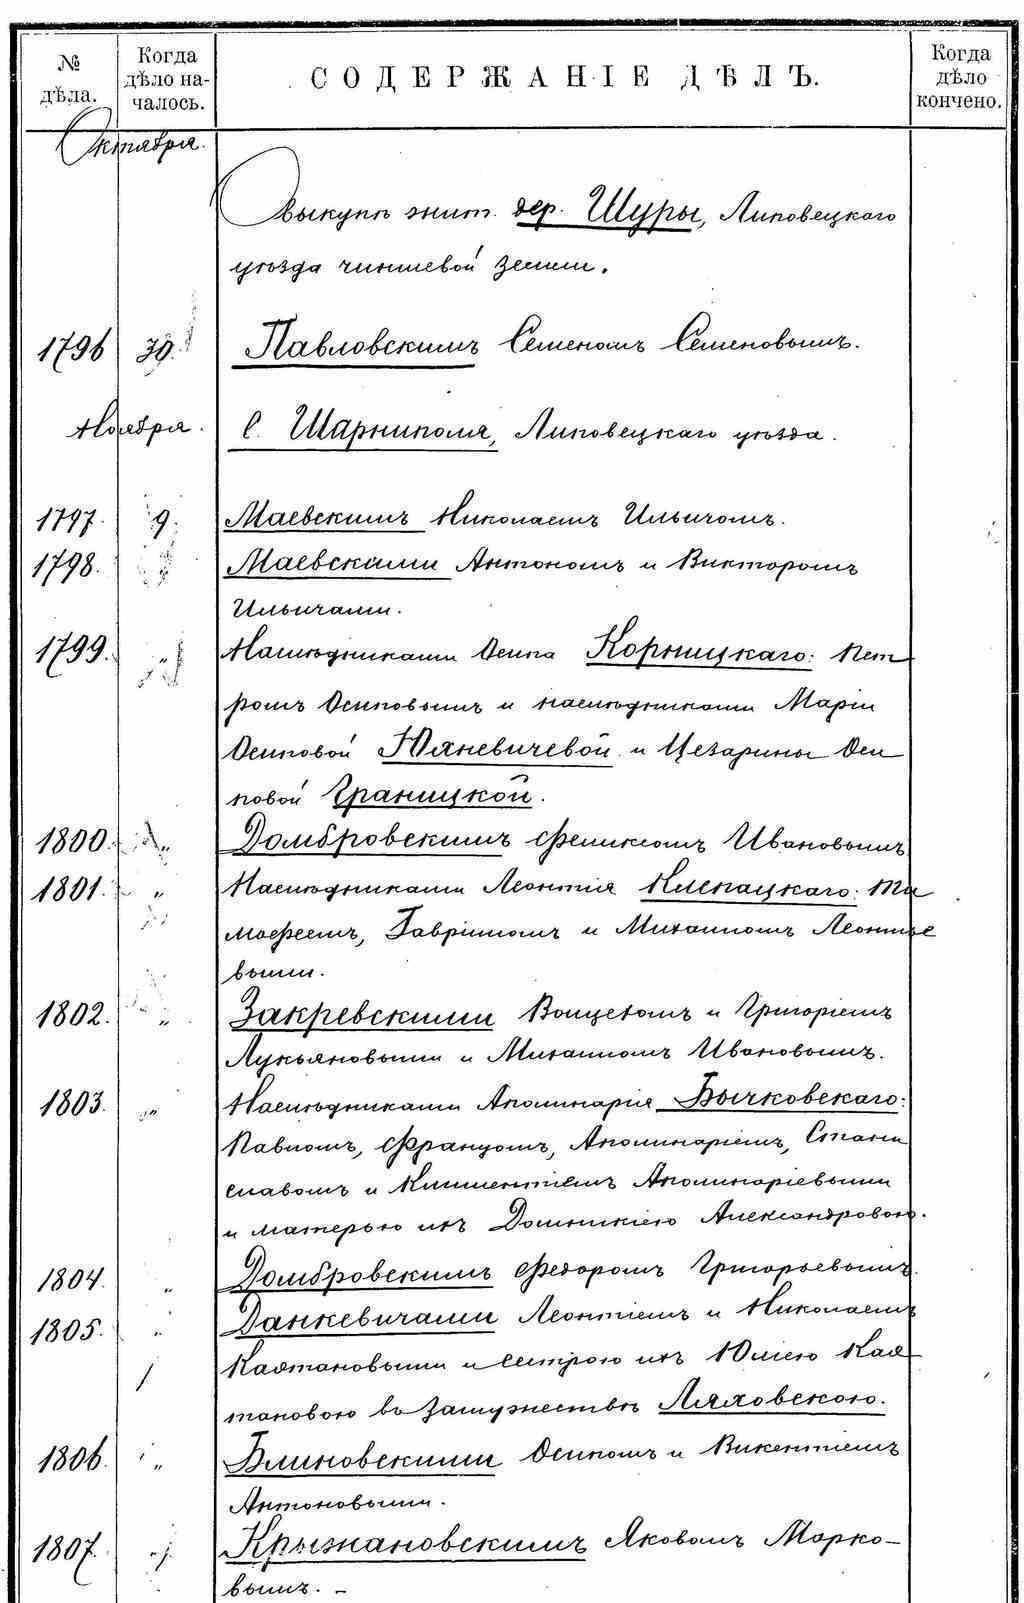 № дѣла.
Когда дѣло началось.
СОДЕРЖАНІЕ ДѢЛЪ.
Когда дѣло кончено.
Октября.
Выкупъ жит. дер. Шуры, Липовецкаго
уѣзда чиншевой земли.
1796 30. Павловскимъ Семеномъ Семеновымъ.
Ноября. С. Шарниполя, Липовецкаго уѣзда.
1797. 9. Маевскимъ Николаемъ Ильичомъ.
1798. " Маевскими Антономъ и Викторомъ
Ильичами.
1799. " Наслѣдниками Осипа Корницкаго: Пет
ромъ Осиповымъ и наслѣдниками Маріи
Осиповой Юхневичевой и Цезарины Оси
повой Границкой.
1800. " Домбровскимъ Феликсомъ Ивановымъ
1801. " Наслѣдниками Леонтія Клепацкаго: Ти
мофеемъ, Гавріиломъ и Михаиломъ Леонтье
выми.
1802. " Закревскими Войцехомъ и Григоріемъ
Лукьяновыми и Михаиломъ Ивановымъ.
1803. " Наслѣдниками Аполинарія Бычковскаго:
Павломъ, Францомъ, Аполинаріемъ, Стани
славомъ и Климентіемъ Аполинаріевыми
и матерью ихъ Домникіею Александровою.
1804. " Домбровскимъ Федоромъ Григорьевымъ
1805. " Данкевичами Леонтіемъ и Николаемъ
Каэтановыми и сестрою ихъ Юліею Каэ
тановою въ замужествѣ Ляховскою.
1806. " Блиновскими Осипомъ и Викентіемъ
Антоновыми.
1807. " Крыжановскимъ Яковомъ Марко-
вымъ. -